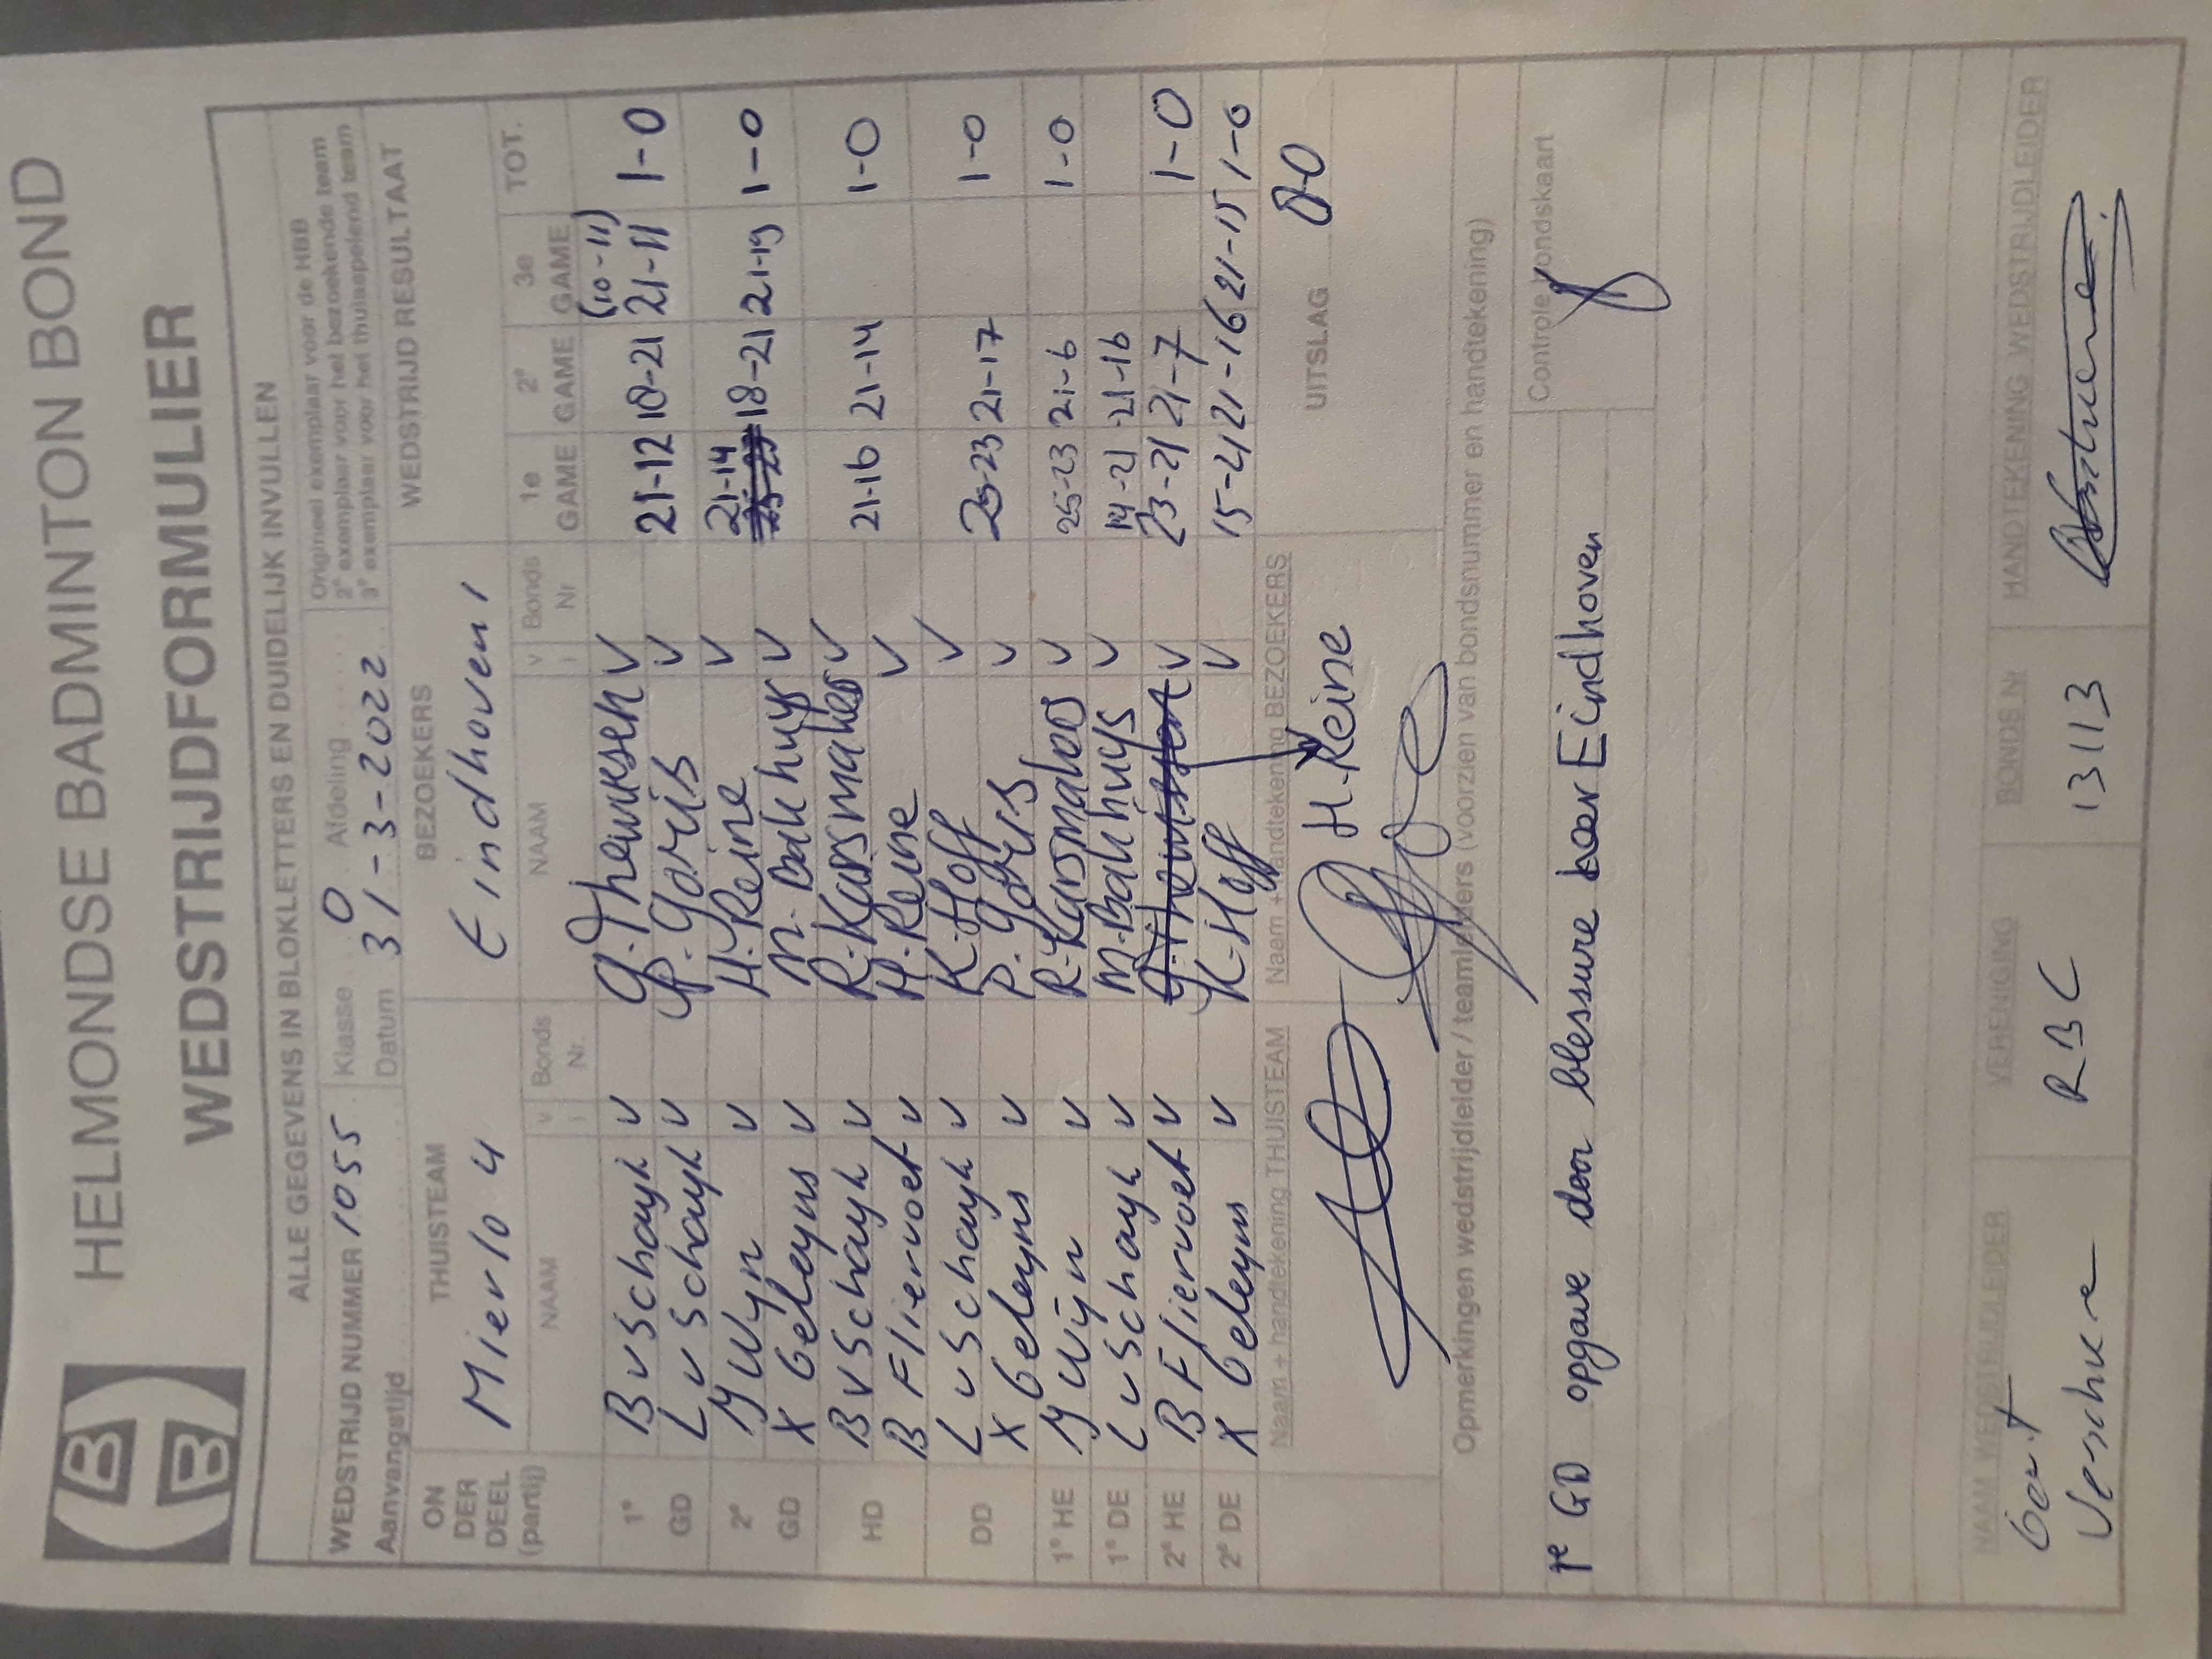 HELMONDSE BADMINTON BOND
WEDSTRIJDFORMULIER
ALLE GEGEVENS IN BLOKLETTERS EN DUIDELIJK INVULLEN
WEDSTRIJD NUMMER 1055 Klasse O Afdeling
Aanvangstijd Datum 31-3-2022
Origineel exemplaar voor de HBB
2e exemplaar voor het bezoekende team
3e exemplaar voor het thuisspelend team
ON DER DEEL (partij) THUISTEAM BEZOEKERS WEDSTRIJD RESULTAAT
Mierlo 4 Eindhoven 1
NAAM v i Bonds Nr. NAAM v i Bonds Nr 1e GAME 2e GAME 3e GAME TOT.
(10-11)
1e B v Schayk v v
GD L v Schayk v P. Joris v 21-12 18-21 21-11 1-0
2e M Wijn v H. Reine v 21-14
GD X Geleyns v M. Bakhuys v 18-21 21-19 1-0
HD B v Schayk v R. Karsmakers v
B Fliervoet v H. Reine v 21-16 21-14 1-0
DD L v Schayk v K. Hoff v
X Geleyns v P. Joris v 25-23 21-17 1-0
1e HE M Wijn v R. Karsmakers v 25-23 21-6 1-0
1e DE L v Schayk v M. Bakhuys v 14-21 21-16
2e HE B Fliervoet v v 23-21 21-7 1-0
2e DE X Geleyns v K. Hoff v 15-21 21-16 21-15 1-0
Naam + handtekening THUISTEAM Naam + handtekening BEZOEKERS UITSLAG 8-0
H. Reine
Opmerkingen wedstrijdleider / teamleiders (voorzien van bondsnummer en handtekening)
Controle bondskaart
1e GD opgave door blessure Eindhoven
NAAM WEDSTRIJDLEIDER VERENIGING BONDS Nr HANDTEKENING WEDSTRIJDLEIDER
RBC 13113